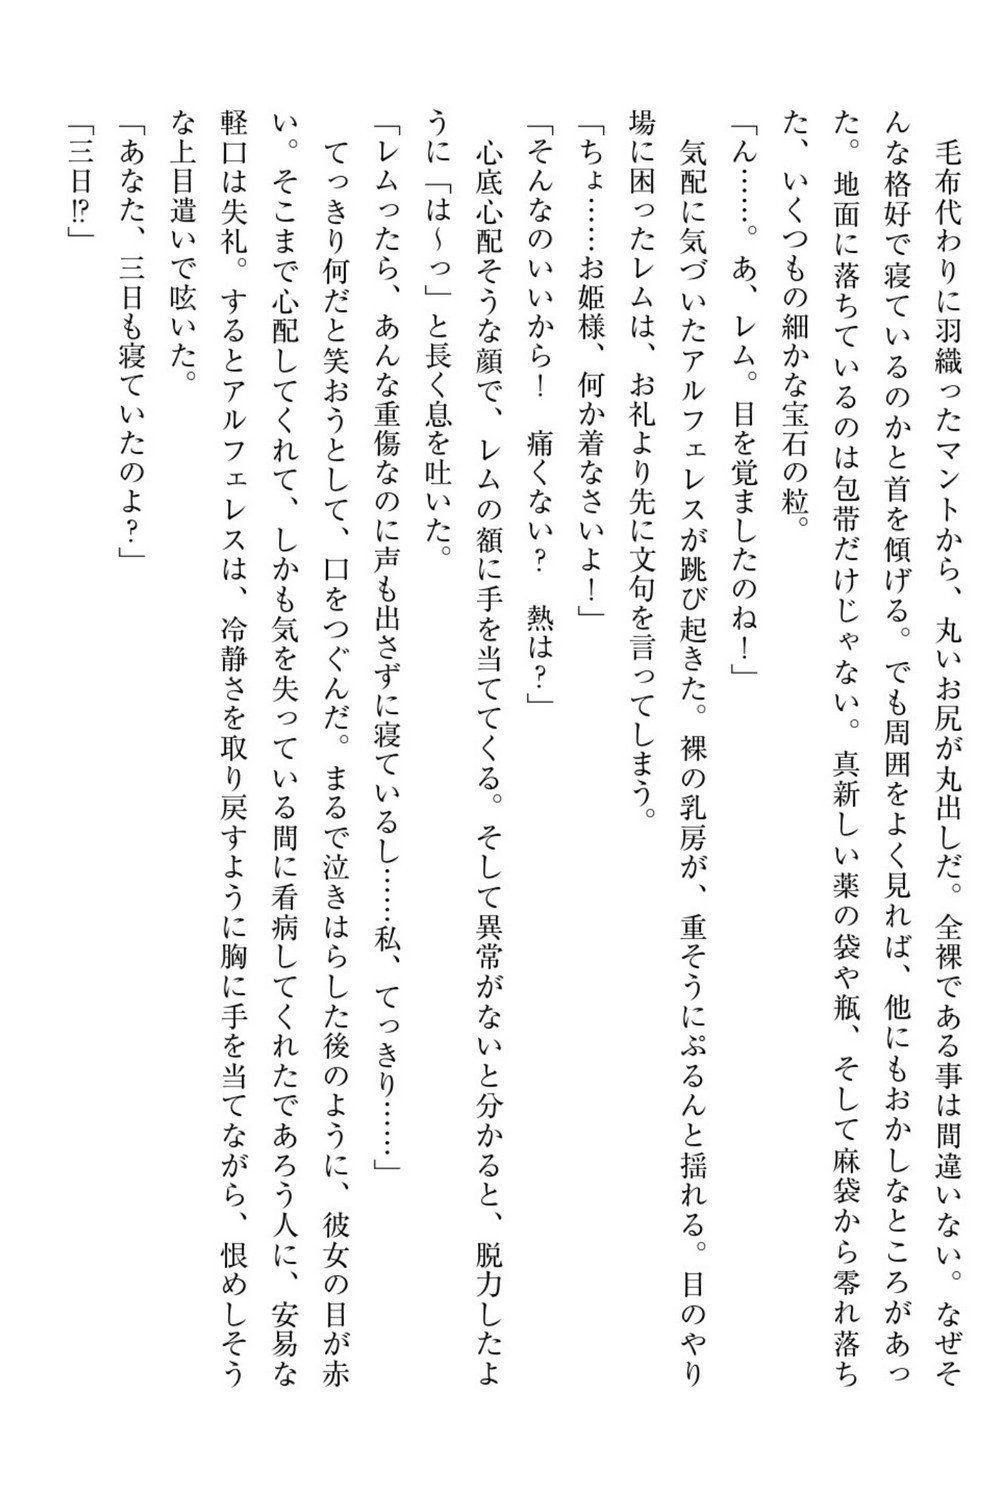 毛布代わりに羽織ったマントから、丸いお尻が丸出しだ。全裸である事は間違いない。なぜそ
んな格好で寝ているのかと首を傾げる。でも周囲をよく見れば、他にもおかしなところがあっ
た。地面に落ちているのは包帯だけじゃない。真新しい薬の袋や瓶、そして麻袋から零れ落ち
た、いくつもの細かな宝石の粒。
「ん……。あ、レム。目を覚ましたのね！」
気配に気づいたアルフェレスが跳び起きた。裸の乳房が、重そうにぷるんと揺れる。目のやり
場に困ったレムは、お礼より先に文句を言ってしまう。
「ちょ……お姫様、何か着なさいよ！」
「そんなのいいから！　痛くない？　熱は？」
心底心配そうな顔で、レムの額に手を当ててくる。そして異常がないと分かると、脱力したよ
うに「は～っ」と長く息を吐いた。
「レムったら、あんな重傷なのに声も出さずに寝ているし……私、てっきり……」
てっきり何だと笑おうとして、口をつぐんだ。まるで泣きはらした後のように、彼女の目が赤
い。そこまで心配してくれて、しかも気を失っている間に看病してくれたであろう人に、安易な
軽口は失礼。するとアルフェレスは、冷静さを取り戻すように胸に手を当てながら、恨めしそう
な上目遣いで呟いた。
「あなた、三日も寝ていたのよ？」
「三日!?」